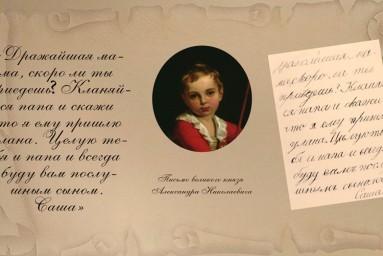 «Дражайшая ма-
ма, скоро ли ты
приедешь? Кланяй-
ся папа и скажи
что я ему пришлю
улана. Целую те-
бя и папа и всегда
буду вам послу-
шным сыном.
Саша»
Письмо великого князя
Александра Николаевича
дражайшая ма-
ма скоро ли ты
приедешь? Кланяй-
ся папа и скажи
что я ему пришлю
улана. Целую те-
бя и папа и всегда
буду вам послу-
шным сыном.
Саша